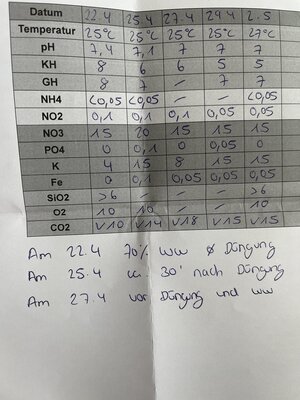 Datum 22.4 25.4 27.4 29.4 2.5
Temperatur 25°C 25°C 25°C 25°C 27°C
pH 7,4 7,1 7 7 7
KH 8 6 6 5 5
GH 8 7 – 7 7
NH4 <0,05 <0,05 – – <0,05
NO2 0,1 0,1 0,1 0,05 0,05
NO3 15 20 15 15 15
PO4 0 0,1 0 0,05 0
K 4 15 8 15 15
Fe 0 0,1 0,05 0,05 0,05
SiO2 >6 – – – >6
O2 10 10 – – 10
CO2 V10 V14 V18 V15 V15
Am 22.4 70% WW Ø Düngung
Am 25.4 30' nach Düngung
Am 27.4 vor Düngung und WW